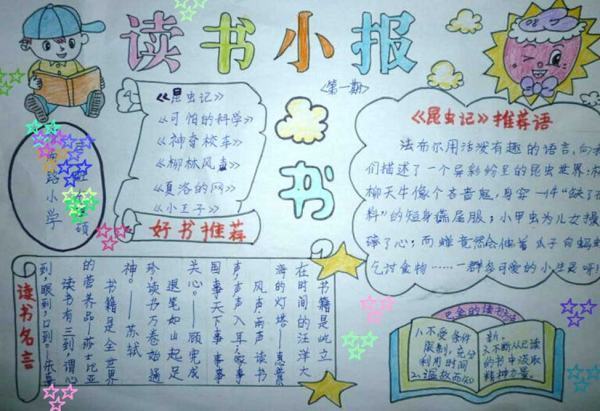 读书小报
<第一期>
《昆虫记》
《可怕的科学》
《神奇校车》
《柳林风声》
《夏洛的网》
《小王子》
好书推荐
路小学
书
《昆虫记》推荐语
法布尔用活泼有趣的语言,向我
们描述了一个异彩纷呈的昆虫世界:
柳天牛像个吝啬鬼,身穿一件“缺了
料”的短身燕尾服;小甲虫为儿女操
碎了心;而蝉竟然会伸着 向蚂
乞讨食物……一群多可爱的小生灵呀!
读书名言
书籍是屹立
在时间的汪洋大
海的灯塔—惠普
风声雨声读书
声声声入耳家事
国事天下事事事
关心。—顾宪成
退笔如山起足
珍,读书万卷始通
神。—苏轼
书籍是全世界
的营养品—莎士比亚
读书有三到,谓心
到,眼到,口到—朱熹
的读书方法
1.不受条件
限制,充分
利用时间
2.温故而知
新.
3.不断从已读
的书中汲取
精神力量.